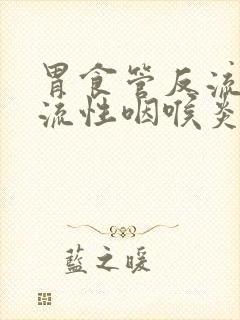 胃食管反流
流性咽喉炎
藍之暖